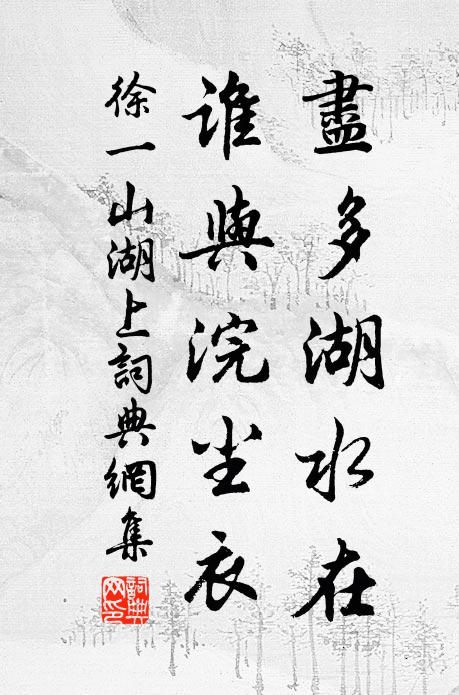 盡多湖水在
誰與浣尘衣
徐一山湖上詞典網集
詞典网印